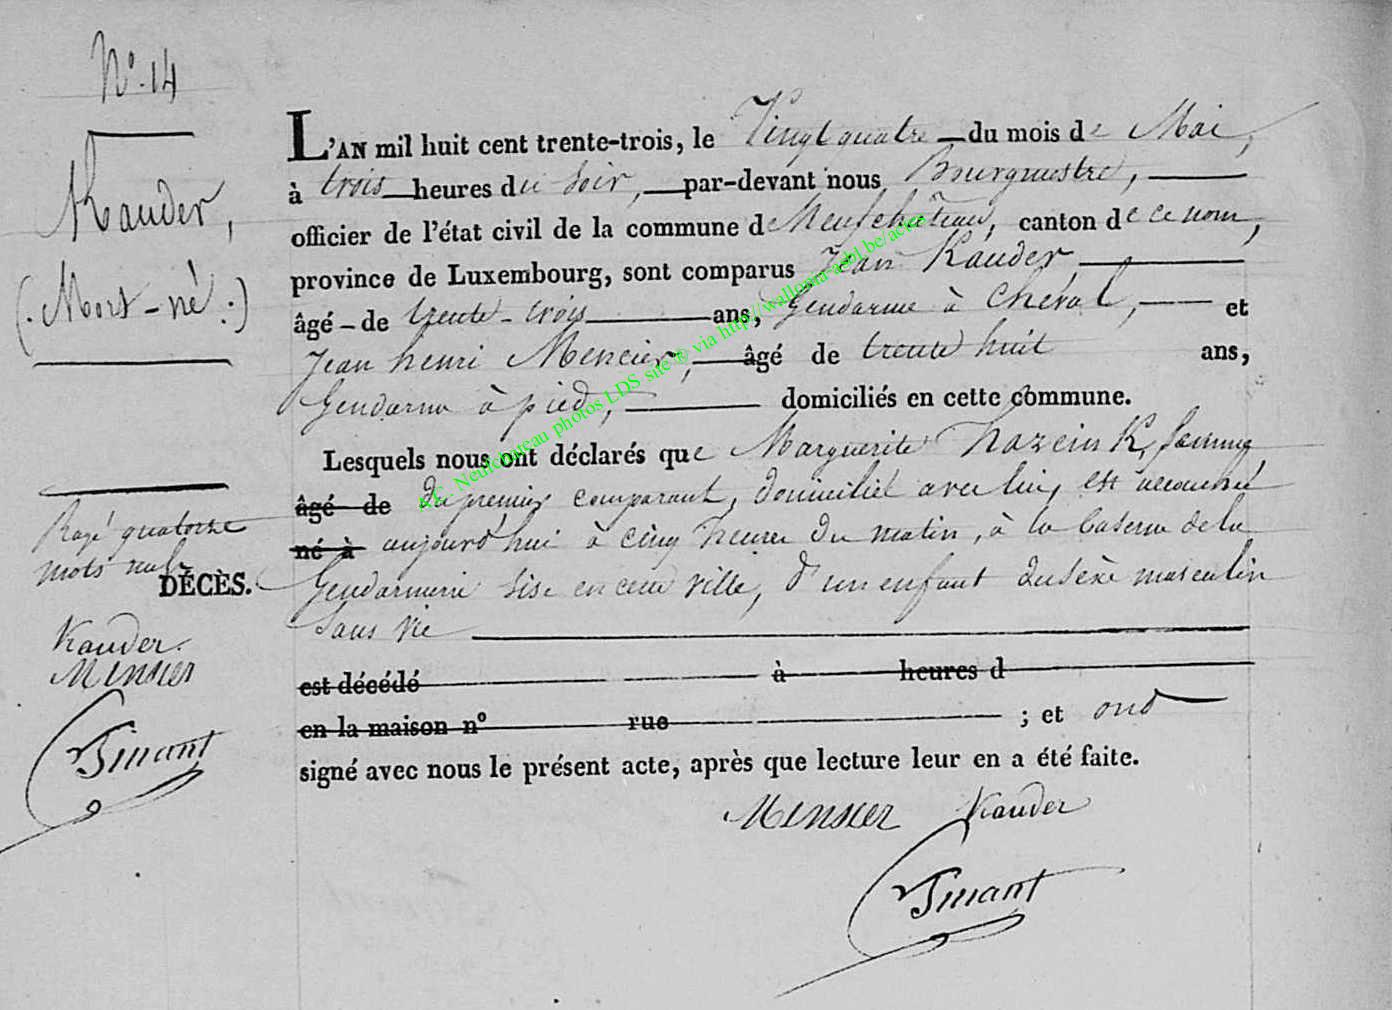 N°. 14
Kauder,
(. Mort-né .)
L'AN mil huit cent trente-trois, le Vingt quatre du mois de Mai,
à trois heures du soir, par-devant nous Bourgmestre,
officier de l'état civil de la commune de Neufchâteau, canton de ce nom,
province de Luxembourg, sont comparus Jean Kauder
âgé de trente-trois ans, Gendarme à Cheval, et
Jean henri Mencier, âgé de trente huit ans,
Gendarme à pied, domiciliés en cette commune.
Lesquels nous ont déclarés que Marguerite femme
âgé de du premier comparant, domicilié avec lui, est accouchée
né à aujourd'hui à cinq heures du matin, à la Caserne de la
Gendarmerie sise en cette ville, d'un enfant du sexe masculin
sans vie
est décédé à heures d
en la maison n° rue ; et ont
signé avec nous le présent acte, après que lecture leur en a été faite.
Mensier Kauder
Tinant
Rayé quatorze
mots nuls
DÉCÈS.
Kauder.
Mensier
Tinant
A.C. Neufchateau photos LDS site @ via http://wallonia-asbl.be/actes